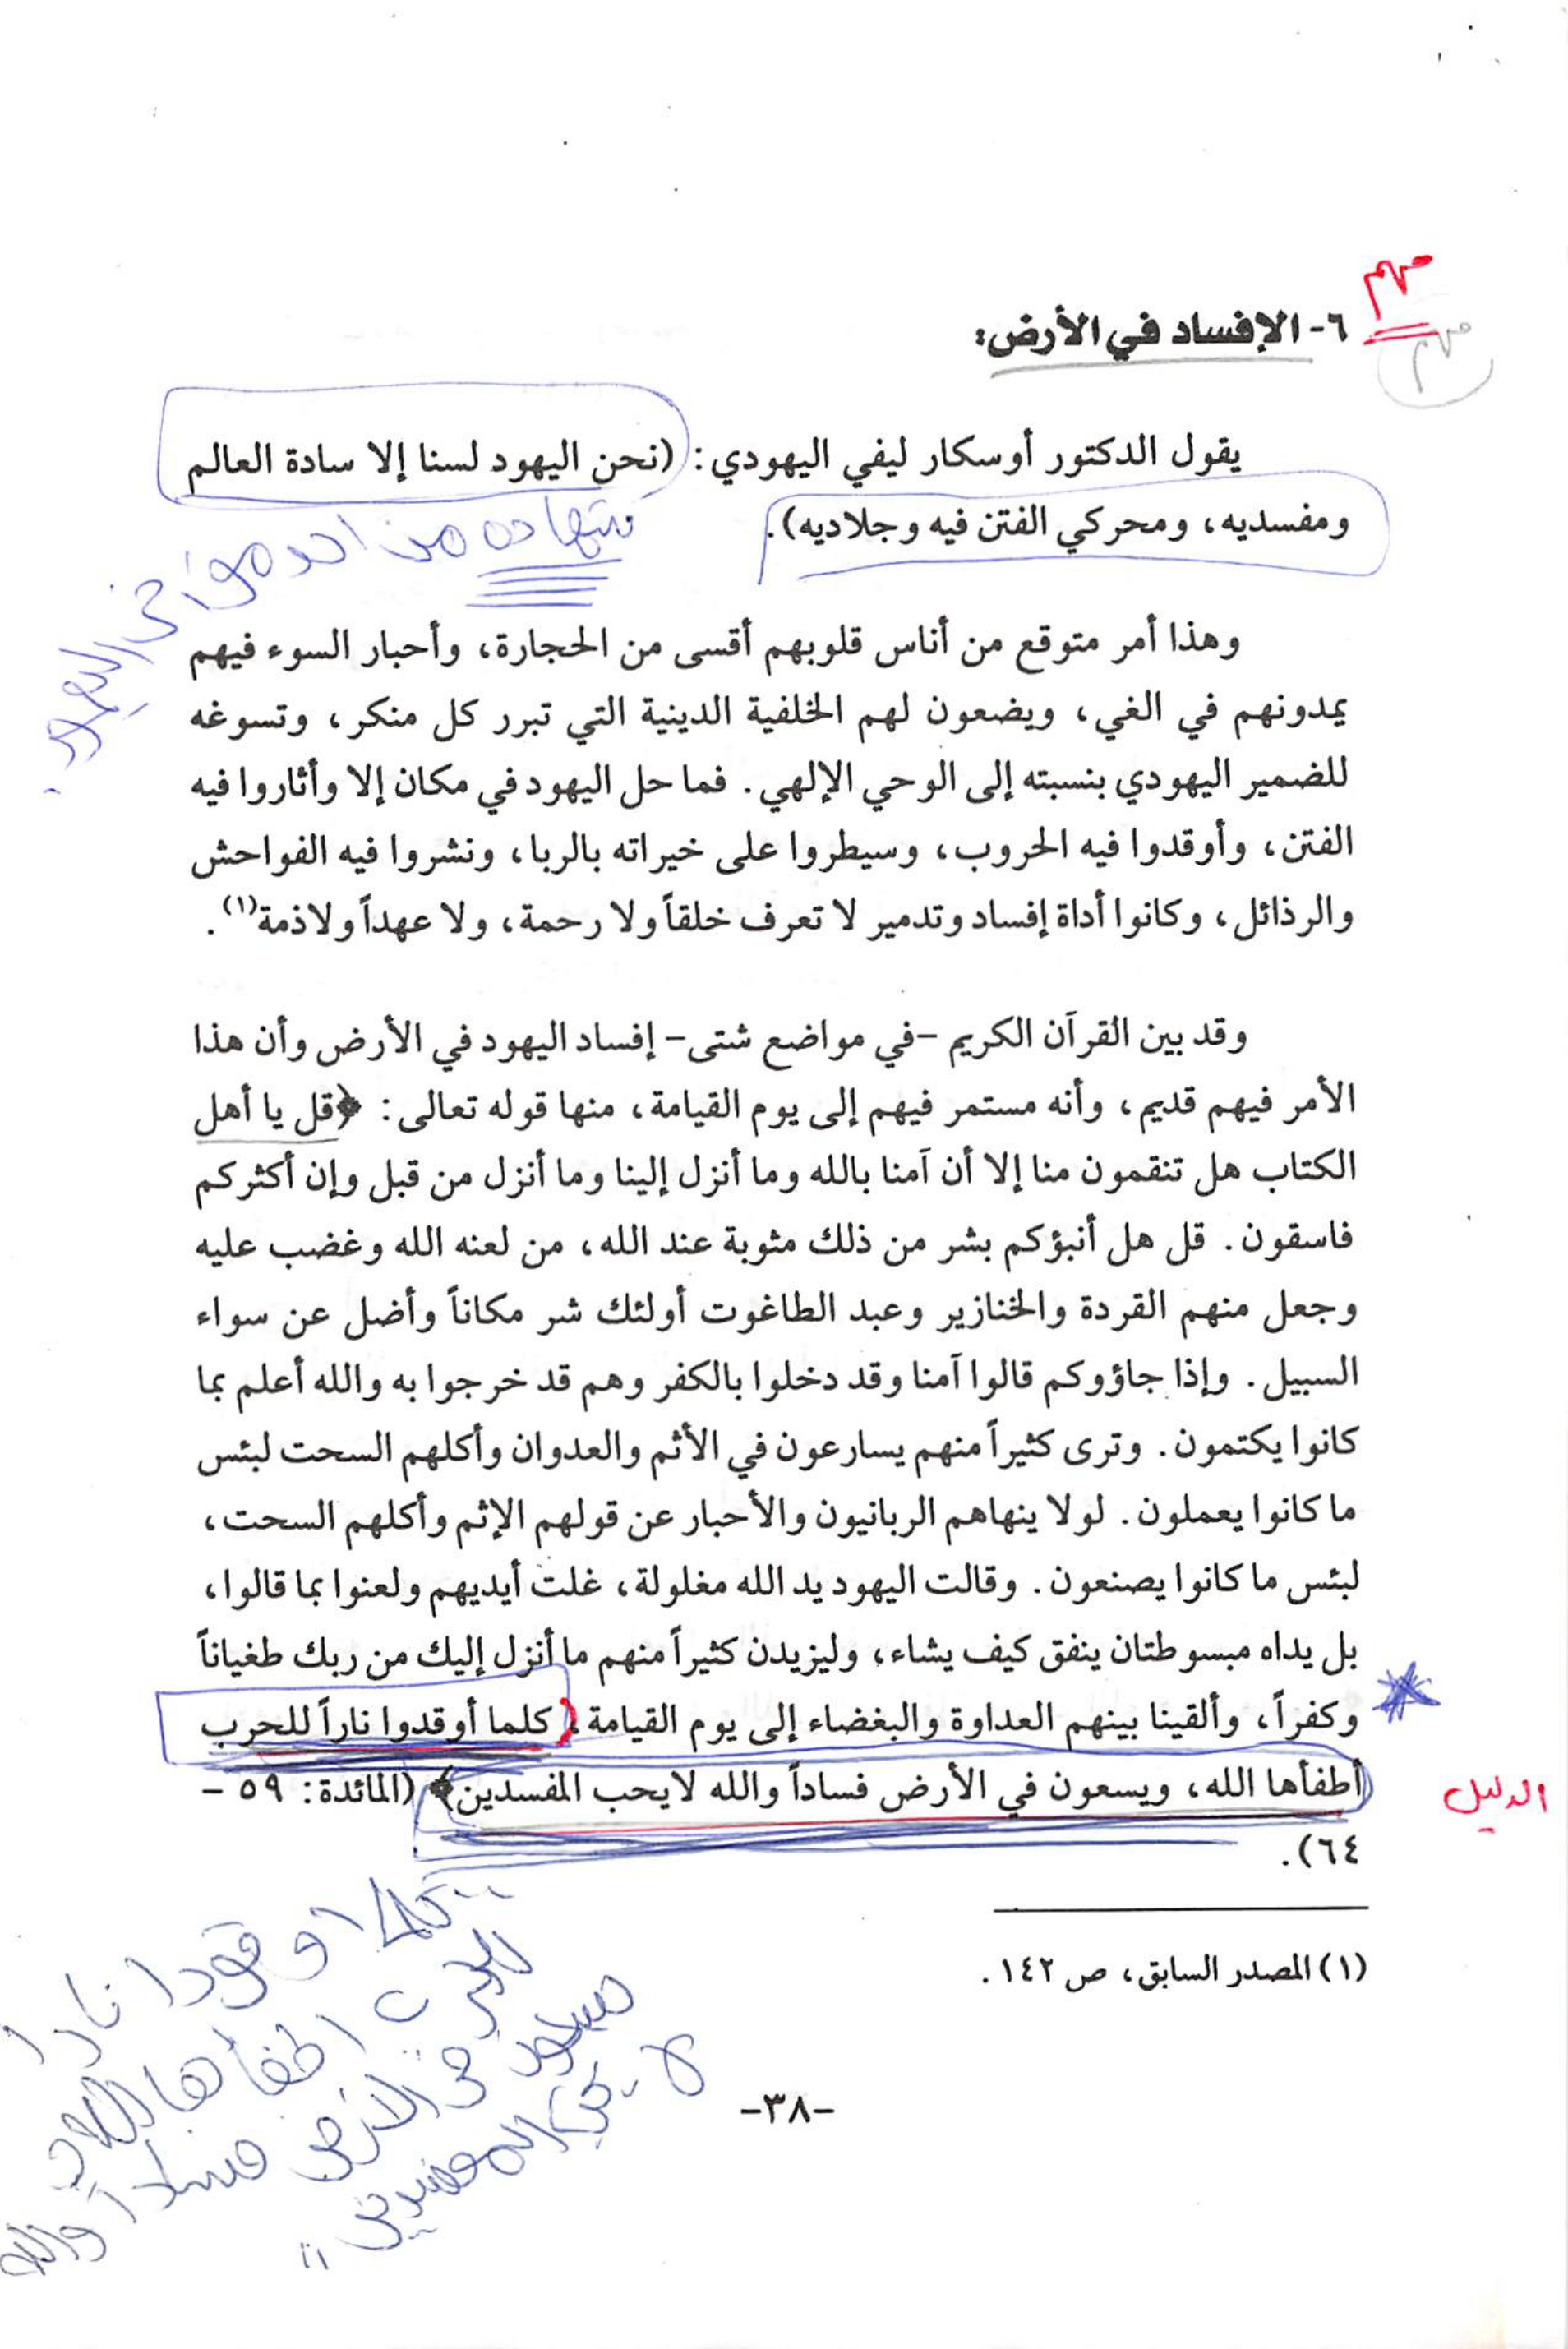 مهم
مهم
٦- الإفساد في الأرض:
يقول الدكتور أوسكار ليفي اليهودي: (نحن اليهود لسنا إلا سادة العالم
ومفسديه، ومحركي الفتن فيه وجلاديه).
شهادة من احد مؤرخى اليهود.
وهذا أمر متوقع من أناس قلوبهم أقسى من الحجارة، وأحبار السوء فيهم
يمدونهم في الغي، ويضعون لهم الخلفية الدينية التي تبرر كل منكر، وتسوغه
للضمير اليهودي بنسبته إلى الوحي الإلهي. فما حل اليهود في مكان إلا وأثاروا فيه
الفتن، وأوقدوا فيه الحروب، وسيطروا على خيراته بالربا، ونشروا فيه الفواحش
والرذائل، وكانوا أداة إفساد وتدمير لا تعرف خلقاً ولا رحمة، ولا عهداً ولاذمة(١).
وقد بين القرآن الكريم -في مواضع شتى- إفساد اليهود في الأرض وأن هذا
الأمر فيهم قديم، وأنه مستمر فيهم إلى يوم القيامة، منها قوله تعالى: ﴿قل يا أهل
الكتاب هل تنقمون منا إلا أن آمنا بالله وما أنزل إلينا وما أنزل من قبل وإن أكثركم
فاسقون. قل هل أنبؤكم بشر من ذلك مثوبة عند الله، من لعنه الله وغضب عليه
وجعل منهم القردة والخنازير وعبد الطاغوت أولئك شر مكاناً وأضل عن سواء
السبيل. وإذا جاؤوكم قالوا آمنا وقد دخلوا بالكفر وهم قد خرجوا به والله أعلم بما
كانوا يكتمون. وترى كثيراً منهم يسارعون في الأثم والعدوان وأكلهم السحت لبئس
ما كانوا يعملون. لولا ينهاهم الربانيون والأحبار عن قولهم الإثم وأكلهم السحت،
لبئس ما كانوا يصنعون. وقالت اليهود يد الله مغلولة، غلت أيديهم ولعنوا بما قالوا،
بل يداه مبسوطتان ينفق كيف يشاء، وليزيدن كثيراً منهم ما أنزل إليك من ربك طغياناً
وكفراً، وألقينا بينهم العداوة والبغضاء إلى يوم القيامة، كلما أوقدوا ناراً للحرب
أطفأها الله، ويسعون في الأرض فساداً والله لايحب المفسدين﴾ (المائدة: ٥٩ -
٦٤).
الدليل
(١) المصدر السابق، ص ١٤٢.
كلما اوقودا نارا
للحرب اطفأها الله
فى الارض فسادا والله
لا يحب المفسدين"
-٣٨-